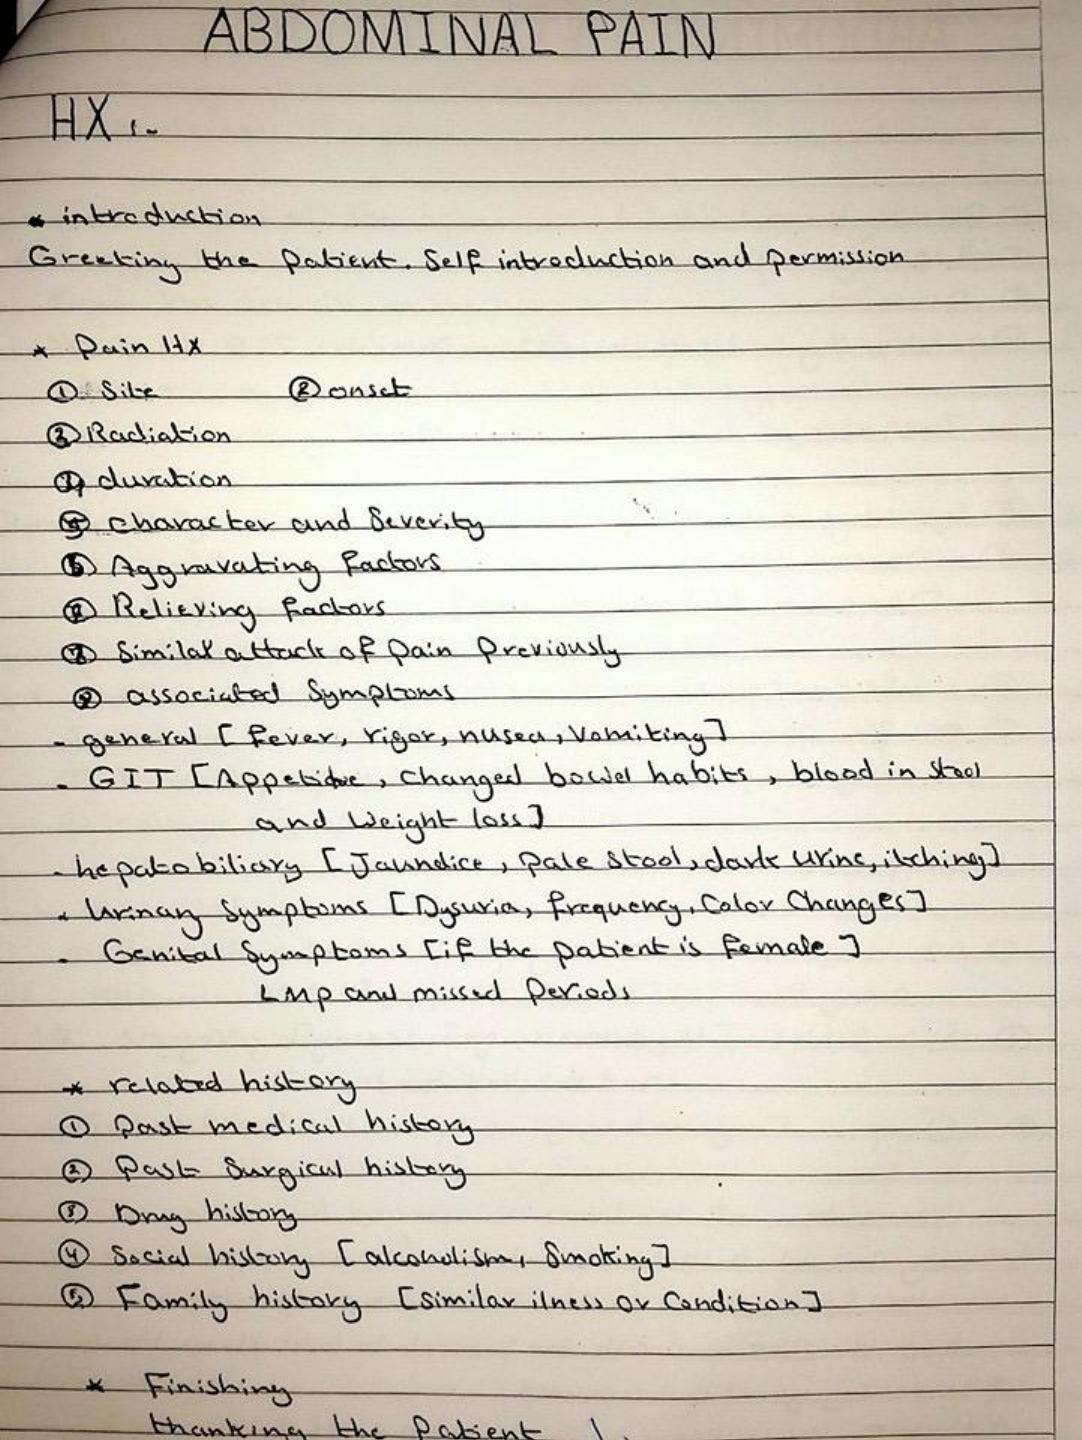 ABDOMINAL PAIN
HX :-
* introduction
Greeting the patient. Self introduction and permission
* Pain HX
① Site ② onset
③ Radiation
④ duration
⑤ character and Severity
⑥ Aggravating factors
⑧ Relieving factors
⑦ Similar attack of pain Previously
⑨ associated Symptoms
- general [fever, rigor, nusea, Vomiting]
- GIT [Appetite, changed bowel habits, blood in stool
and Weight loss]
- hepatobiliary [Jaundice, pale stool, dark urine, itching]
- Urinary Symptoms [Dysuria, frequency, Color Changes]
- Genital Symptoms [if the patient is female]
LMP and missed Periods
* related history
① Past medical history
② Past Surgical history
③ Drug history
④ Social history [alcoholism, Smoking]
⑤ Family history [similar ilness or Condition]
* Finishing
thanking the Patient